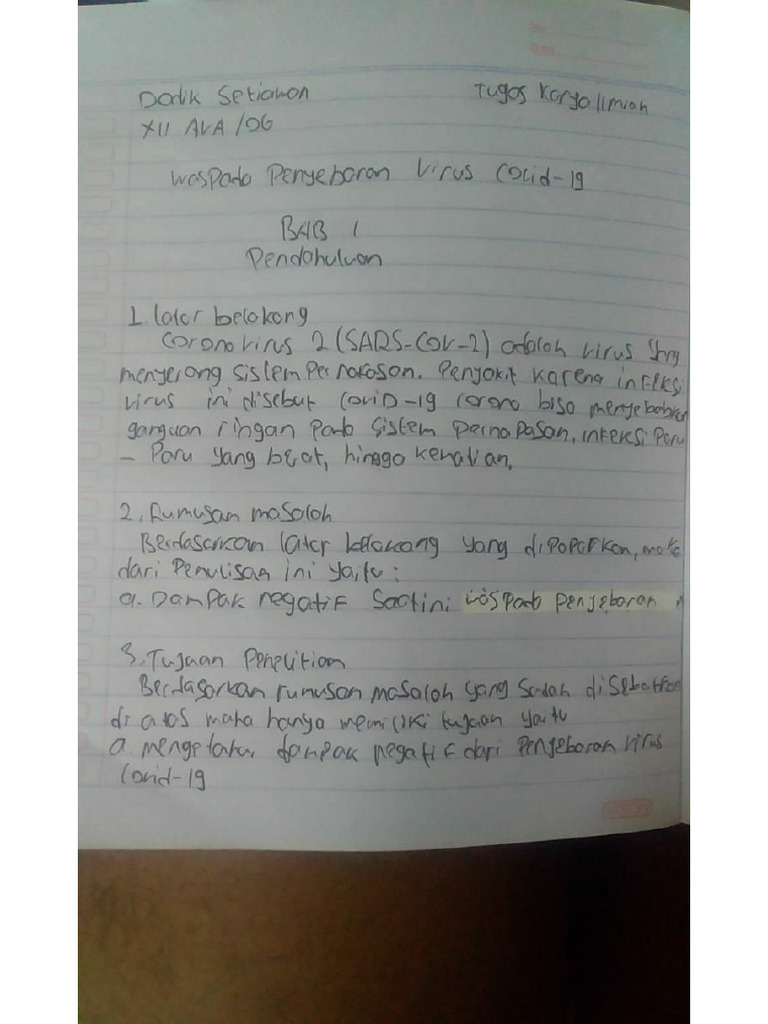 Dodik Setiawan
Tugas Karya Ilmiah
XII AVA /06
Waspada Penyebaran Virus Covid-19
BAB 1
Pendahuluan
1. latar belakang
Corona virus 2 (SARS-COV-2) adalah virus yang
menyerang sistem Pernafasan. Penyakit karena infeksi
virus ini disebut COVID-19 corona bisa menyebabkan
ganguan ringan Pada sistem pernapasan, infeksi Paru
- Paru yang berat, hingga kematian.
2. Rumusan masalah
Berdasarkan latar belakang yang dipaparkan, maka
dari Penulisan ini yaitu:
a. Dampak negatif Saat ini waspada penyebaran
3. Tujuan Penelitian
Berdasarkan rumusan masalah yang Sudah disebutkan
di atas maka hanya memiliki tujuan yaitu
a. mengetahui dampak negatif dari Penyebaran virus
Covid-19